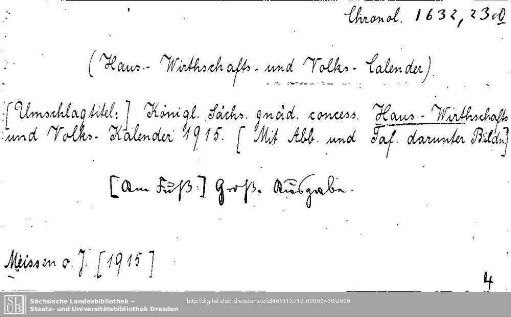 Chronol. 1632, 230
(Haus- Wirthschafts- und Volks-Calender)
[Umschlagtitel:] Königl. Sächs. gnäd. concess. Haus-Wirthschafts
und Volks-Kalender 1915. [Mit Abb. und Taf. darunter Bildn]
[Am Fuß:] Groß. Ausgabe.
Meissen o. J. [1915]
4
SLUB
Sächsische Landesbibliothek –
Staats- und Universitätsbibliothek Dresden